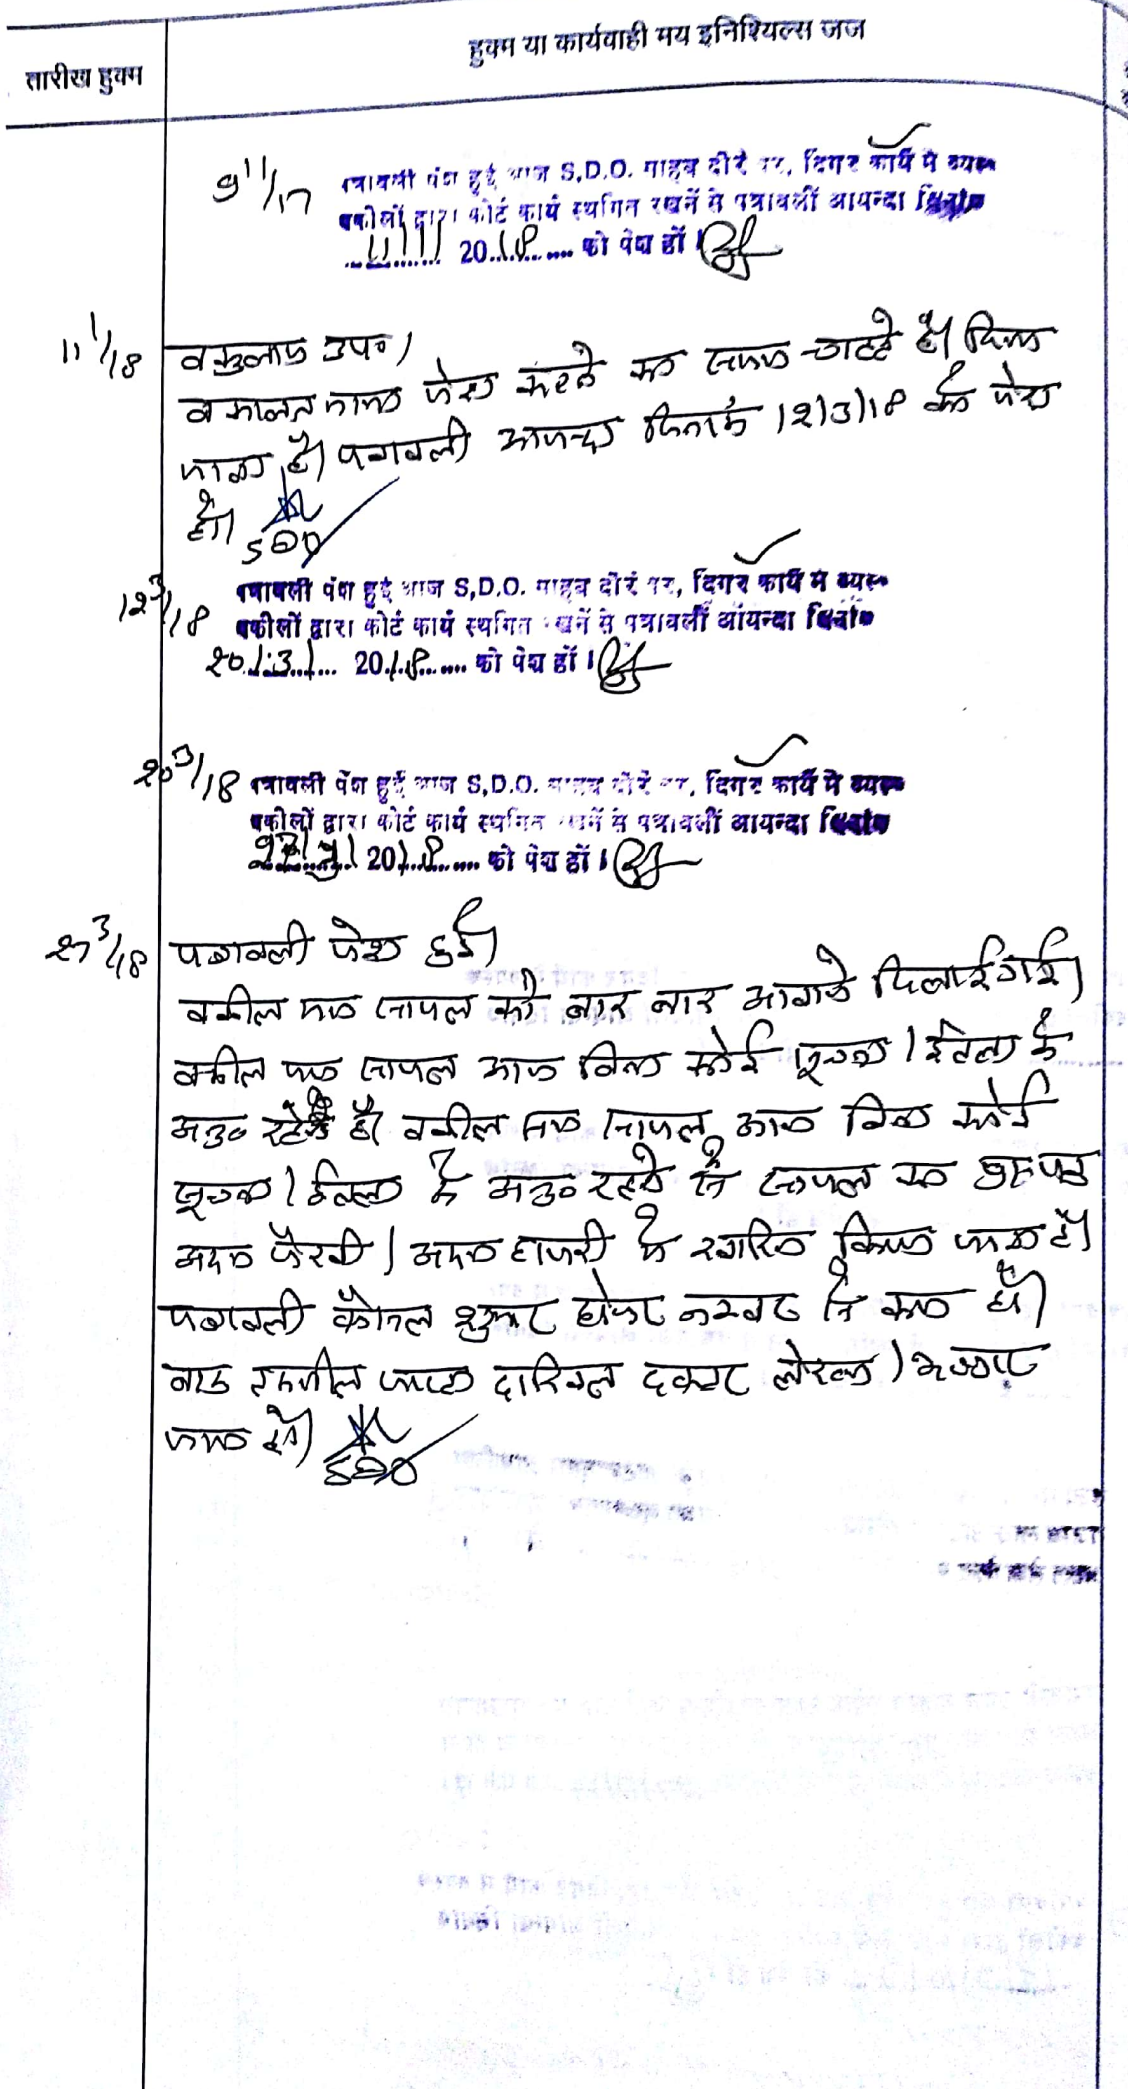 हुक्म या कार्यवाही मय इनिशियल्स जज
तारीख हुक्म
9/11/17 पत्रावली पेश हुई आज S.D.O. साहब दौरे पर, दिगर कार्य में व्यस्त
वकीलों द्वारा कोर्ट कार्य स्थगित रखनें से पत्रावली आयन्दा दिनांक
11/1/2018 को पेश हों।
11/1/18 वकुलाय उप०।
वकालत नामा पेश करने का समय चाहते है। दिया
जाता है। पत्रावली आयन्दा दिनांक 12/3/18 को पेश
हो।
SDO
12/3/18 पत्रावली पेश हुई आज S.D.O. साहब दौरे पर, दिगर कार्य में व्यस्त
वकीलों द्वारा कोर्ट कार्य स्थगित रखनें से पत्रावली आयन्दा दिनांक
20/3/2018 को पेश हों।
20/3/18 पत्रावली पेश हुई आज S.D.O. साहब दौरे पर, दिगर कार्य में व्यस्त
वकीलों द्वारा कोर्ट कार्य स्थगित रखनें से पत्रावली आयन्दा दिनांक
27/3/2018 को पेश हों।
27/3/18 पत्रावली पेश हुई।
वकील सायल को बार बार आवाजे दिलाई गई।
वकील सायल आज बिना कोई सूचना / इतला के
अनु० रहे है। वकील सायल, आज बिना कोई
सूचना / इतला के अनु० रहने से सायल का
अदम पैरवी / अदम हाजरी मे खारिज किया जाता है।
पत्रावली फैसल शुमार होकर नम्बर से कम हो।
बाद तकमील जाप्ता दाखिल दफ्तर
जावे।
SDO